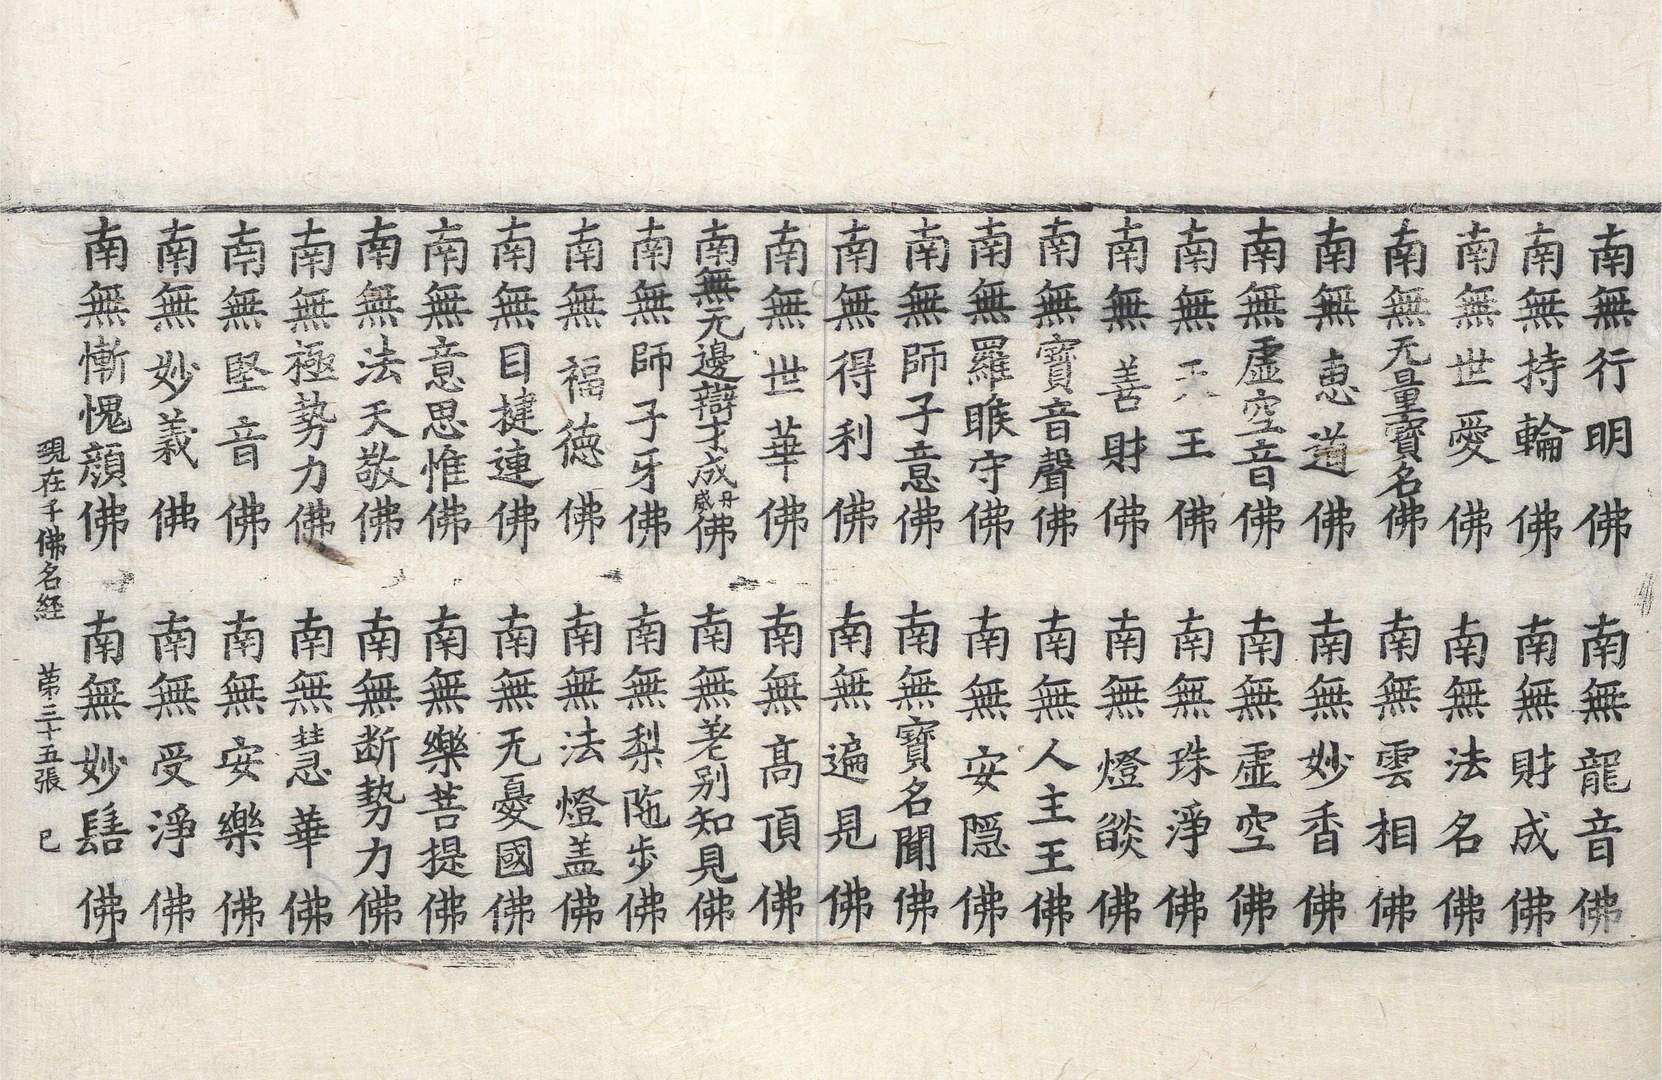 南無行明佛　南無龍音佛
南無持輪佛　南無財成佛
南無世愛佛　南無法名佛
南無无量寶名佛　南無雲相佛
南無惠道佛　南無妙香佛
南無虛空音佛　南無虛空佛
南無天王佛　南無珠淨佛
南無善財佛　南無燈燄佛
南無寶音聲佛　南無人主王佛
南無羅睺守佛　南無安隱佛
南無師子意佛　南無寶名聞佛
南無得利佛　南無遍見佛
南無世華佛　南無髙頂佛
南無无邊辯才成丹威佛　南無差別知見佛
南無師子牙佛　南無梨陁步佛
南無福德佛　南無法燈盖佛
南無目揵連佛　南無无憂國佛
南無意思惟佛　南無樂菩提佛
南無法天敬佛　南無断勢力佛
南無極勢力佛　南無慧華佛
南無堅音佛　南無安樂佛
南無妙義佛　南無受淨佛
南無慚愧顔佛　南無妙髻佛
現在千佛名経　第三十五張　巳